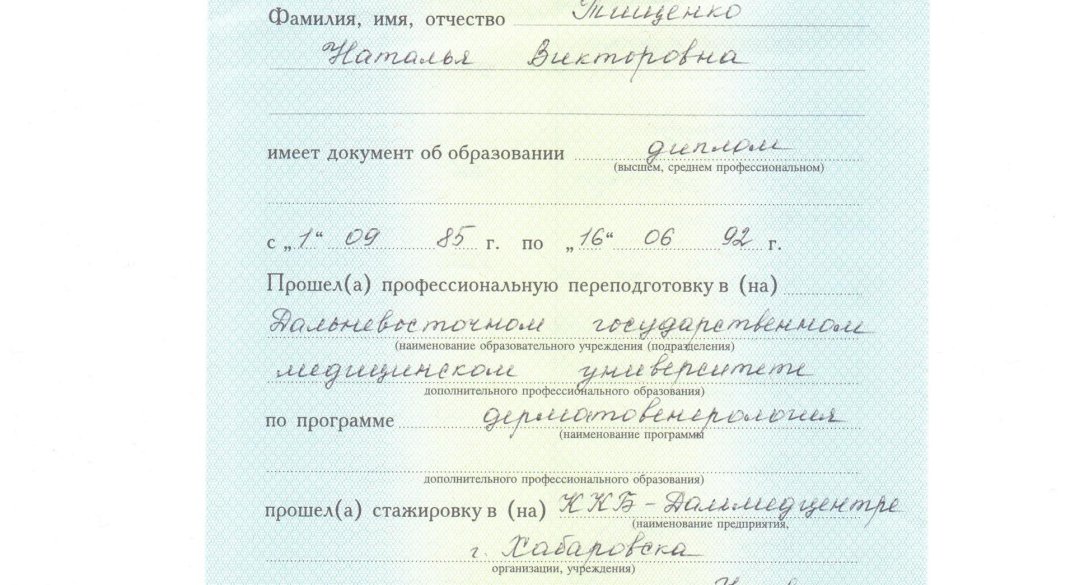 Фамилия, имя, отчество Тищенко
Наталья Викторовна
имеет документ об образовании диплом
(высшем, среднем профессиональном)
с „1“ 09 85 г. по „16“ 06 92 г.
Прошел(а) профессиональную переподготовку в (на)
Дальневосточном государственном
(наименование образовательного учреждения (подразделения)
медицинском университете
дополнительного профессионального образования)
по программе дерматовенерология
(наименование программы
дополнительного профессионального образования)
прошел(а) стажировку в (на) ККБ - Дальмедцентре
(наименование предприятия,
г. Хабаровска
организации, учреждения)